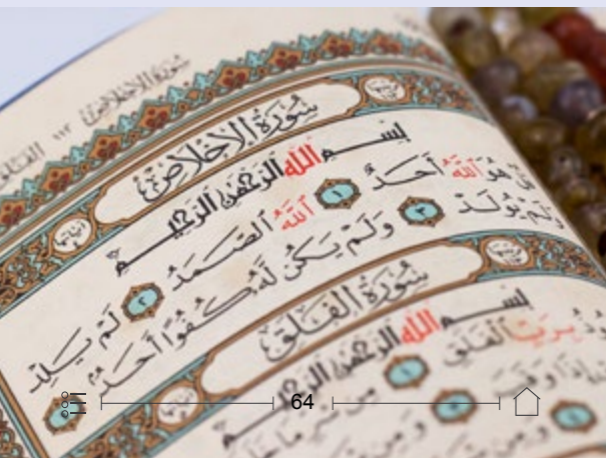 سُورَةُ الإِخْلَاصِ ١١٢
سُورَةُ الإِخْلَاصِ
بِسْمِ اللَّهِ الرَّحْمَٰنِ الرَّحِيمِ
هُوَ اللَّهُ أَحَدٌ ١ اللَّهُ الصَّمَدُ ٢ لَمْ يَلِدْ
وَلَمْ يُولَدْ ٣ وَلَمْ يَكُن لَّهُ كُفُوًا أَحَدٌ
سُورَةُ الْفَلَقِ
بِسْمِ اللَّهِ الرَّحْمَٰنِ الرَّحِيمِ
بِرَبِّ الْفَلَقِ ١ مِن شَرِّ مَا خَلَقَ
64